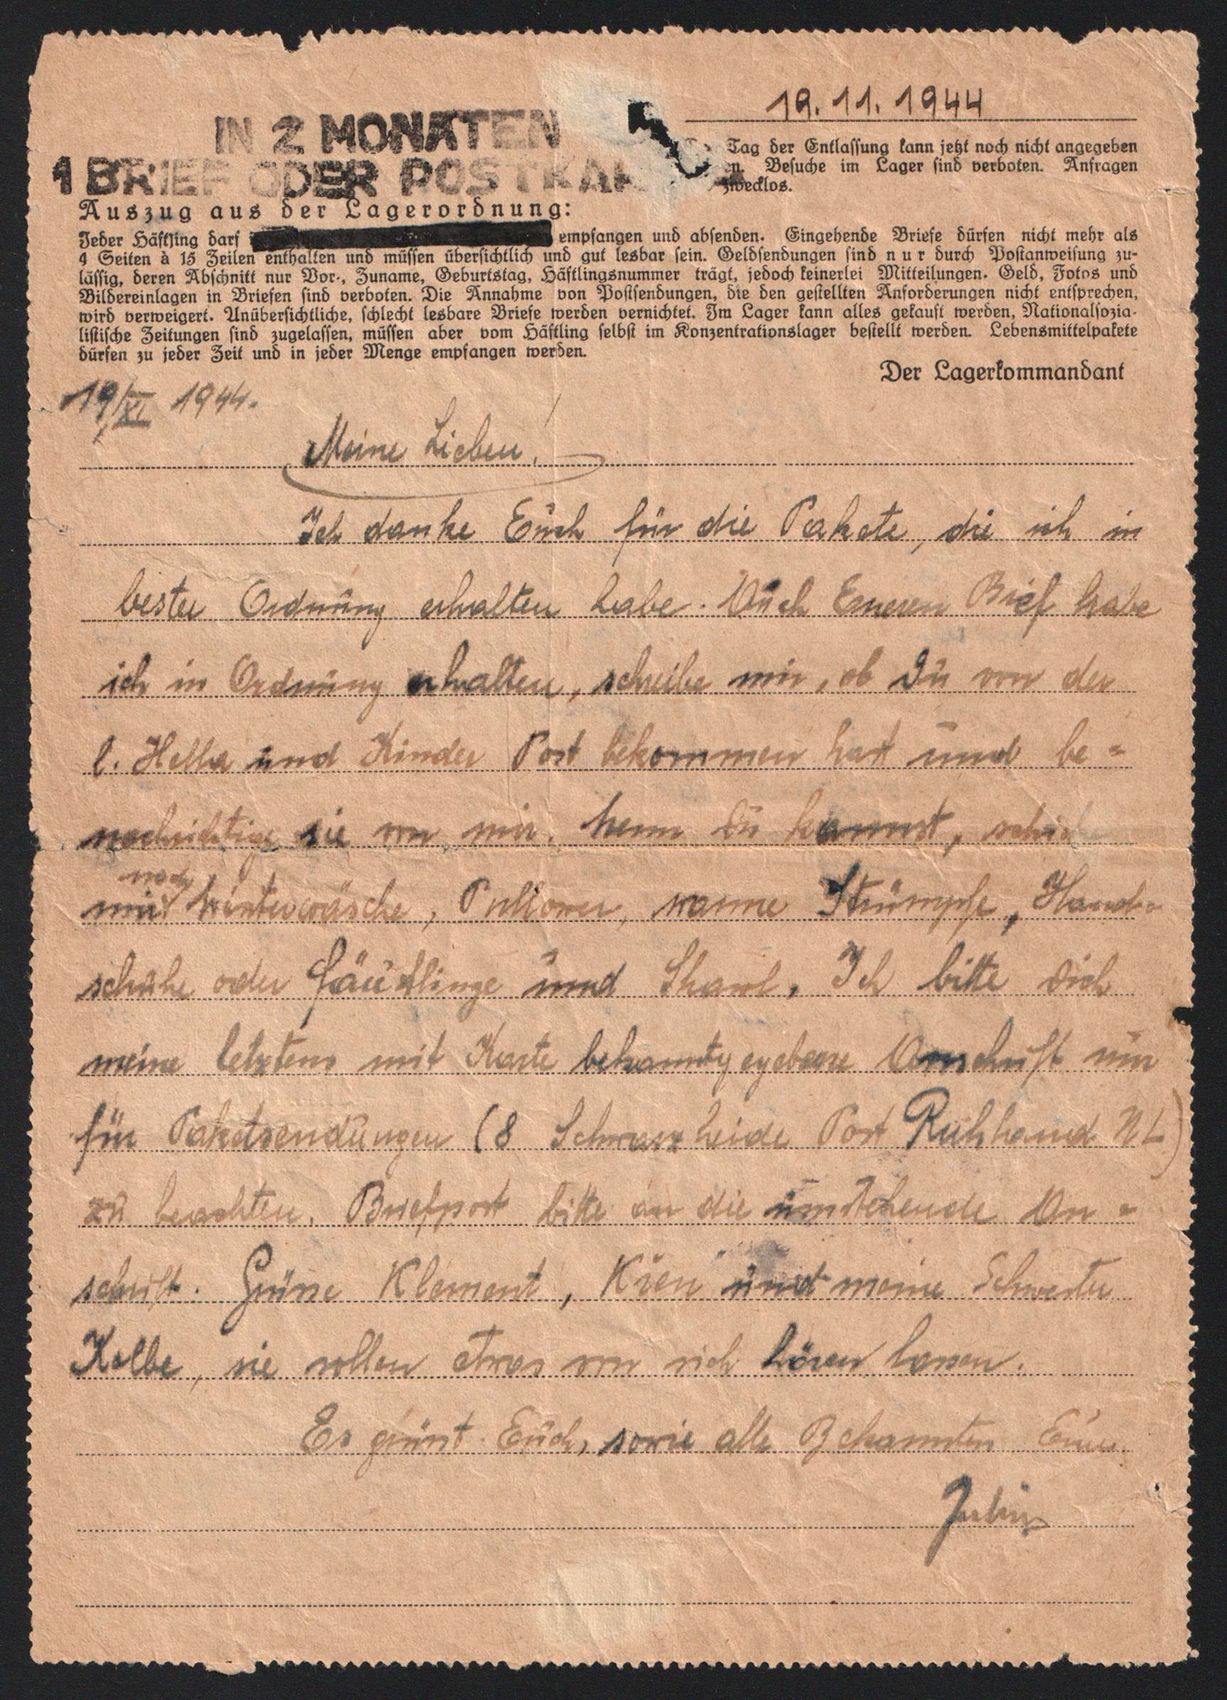 19. 11. 1944
IN 2 MONATEN
1 BRIEF ODER POSTKAR
Tag der Entlassung kann jetzt noch nicht angegeben
n. Besuche im Lager sind verboten. Anfragen
zwecklos.
Auszug aus der Lagerordnung:
Jeder Häftling darf empfangen und absenden. Eingehende Briefe dürfen nicht mehr als
4 Seiten à 15 Zeilen enthalten und müssen übersichtlich und gut lesbar sein. Geldsendungen sind nur durch Postanweisung zu-
lässig, deren Abschnitt nur Vor-, Zuname, Geburtstag, Häftlingsnummer trägt, jedoch keinerlei Mitteilungen. Geld, Fotos und
Bildereinlagen in Briefen sind verboten. Die Annahme von Postsendungen, die den gestellten Anforderungen nicht entsprechen,
wird verweigert. Unübersichtliche, schlecht lesbare Briefe werden vernichtet. Im Lager kann alles gekauft werden, Nationalsozia-
listische Zeitungen sind zugelassen, müssen aber vom Häftling selbst im Konzentrationslager bestellt werden. Lebensmittelpakete
dürfen zu jeder Zeit und in jeder Menge empfangen werden.
Der Lagerkommandant
19/XI 1944.
Meine Lieben!
Ich danke Euch für die Pakete, die ich in
bester Ordnung erhalten habe. Auch Eueren Brief habe
ich in Ordnung erhalten, schreibe mir, ob Du von der
l. Hella und Kinder Post bekommen hast und be-
nachrichtige sie von mir. Wenn Du kannst, schick
mir noch Winterwäsche, Pullower, warme Strümpfe, Hand-
schuhe oder Fäustlinge und Shawl. Ich bitte Dich
meine letztens mit Karte bekanntgegebene Anschrift nur
für Paketsendungen (8 Schwarzheide Post Ruhland NL)
zu beachten. Briefpost bitte an die umstehende An-
schrift. Grüsse Klement, Kien und meine Schwester
Kolbe, sie sollen etwas von sich hören lassen.
Es grüsst Euch, sowie alle Bekannten Euer
Julius